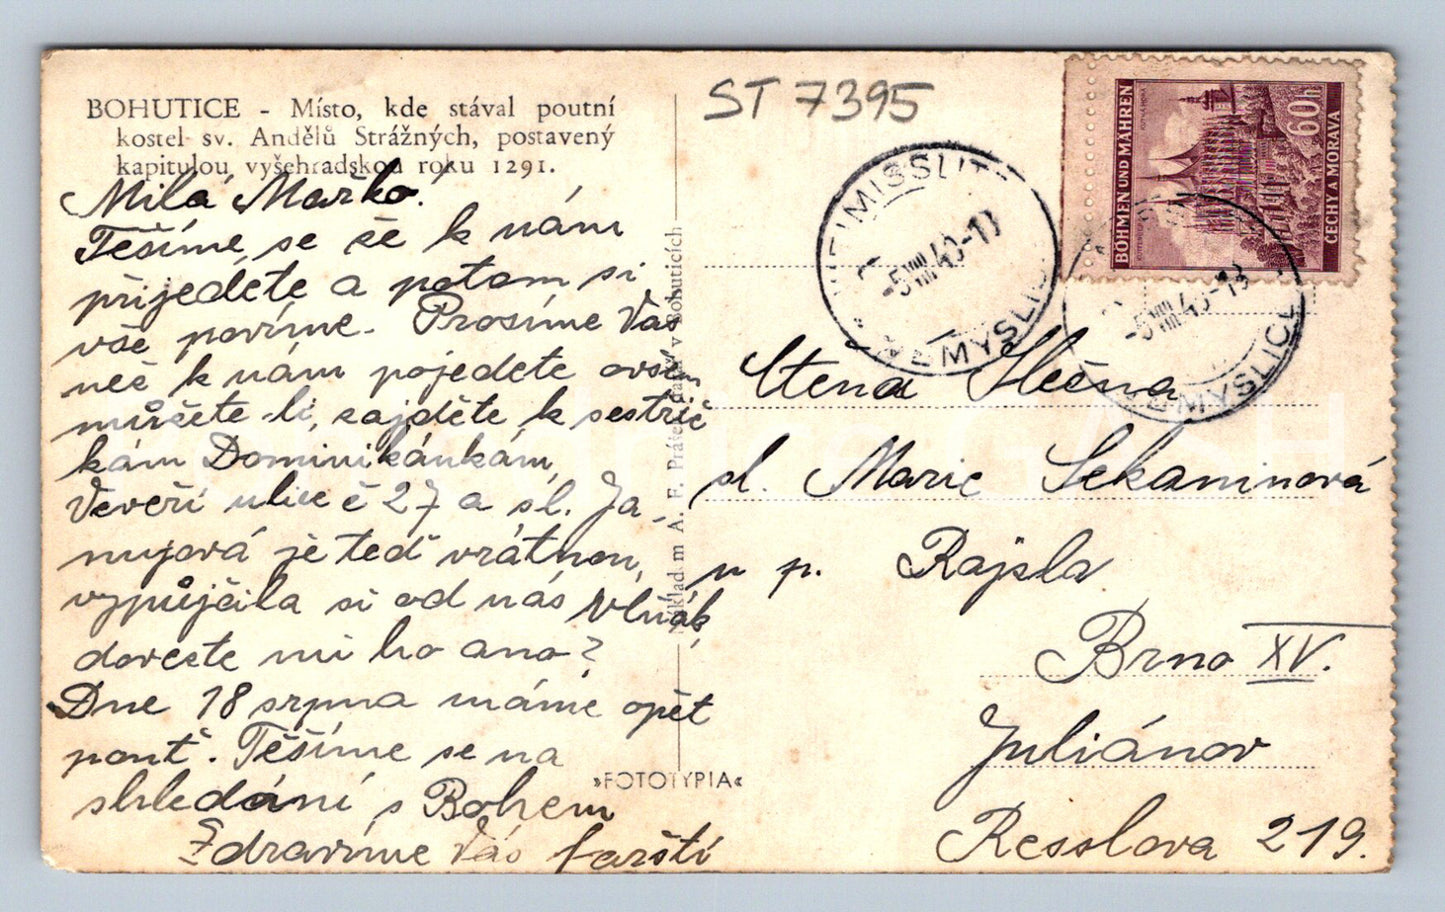 BOHUTICE - Místo, kde stával poutní
kostel sv. Andělů Strážných, postavený
kapitulou vyšehradskou roku 1291.
Milá Mařko!
Těšíme se že k nám
přijedete a potom si
vše povíme. Prosíme Vás
než k nám pojedete ovšem
můžete-li, zajděte k sestřič
kám Dominikánkám,
Veveří ulice č 27 a sl. Ja
nujová je teď vrátnou,
vypůjčila si od nás
doveste mi ho ano?
Dne 18 srpna máme opět
pouť. Těšíme se na
shledání s Bohem
Zdravíme Vás farští
Nákladem A. F. Prášek, v Bohuticích
»FOTOTYPIA«
ST 7395
BÖHMEN UND MÄHREN
60h
ČECHY A MORAVA
MISSLITZ
-5.VIII.40-1
EMYSLIC
-5.VIII.40-13
EMYSLICE
Ctěná Slečna
sl. Marie Sekaninová
u p. Rajsla
Brno XV.
Juliánov
Resslova 219.